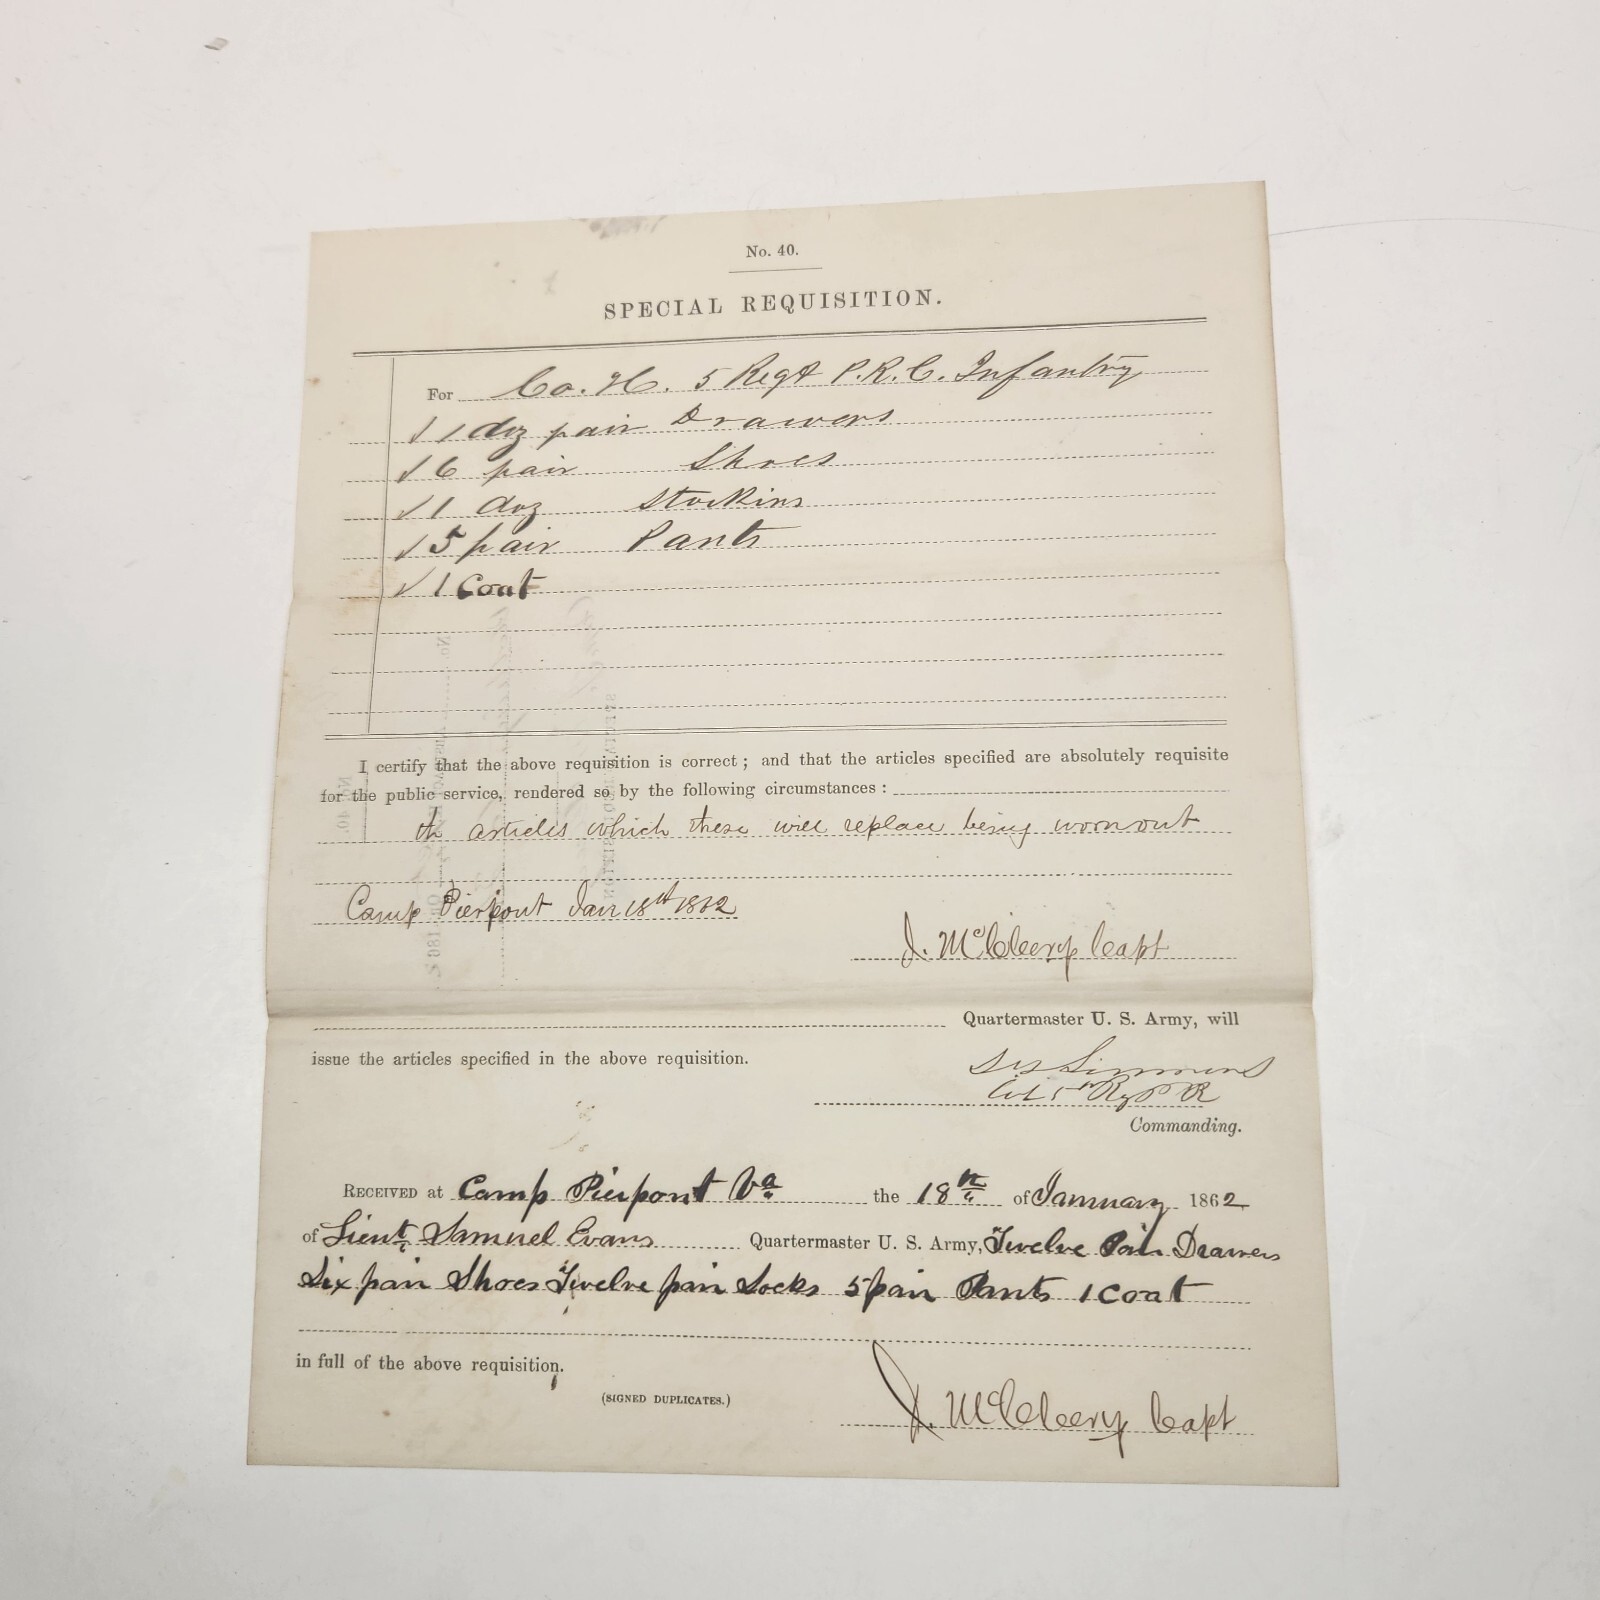 No. 40.
SPECIAL REQUISITION.
For Co. H. 5 Regt P.R.C. Infantry
✓ 1 doz pair Drawers
✓ 6 pair Shoes
✓ 1 doz Stockins
✓ 5 pair Pants
✓ 1 Coat
I certify that the above requisition is correct; and that the articles specified are absolutely requisite
for the public service, rendered so by the following circumstances:
th articles which these will replace being wornout
Camp Pierpont Jan 18th 1862
J. McCleery Capt
Quartermaster U. S. Army, will
issue the articles specified in the above requisition.
Simmons
Col 5th Reg P R
Commanding.
RECEIVED at Camp Pierpont Va the 18th of January 1862
of Lieut. Samuel Evans Quartermaster U. S. Army, Twelve Pair Drawers
Six pair Shoes Twelve pair Socks 5 pair Pants 1 Coat
in full of the above requisition.
(SIGNED DUPLICATES.)
J. McCleery Capt